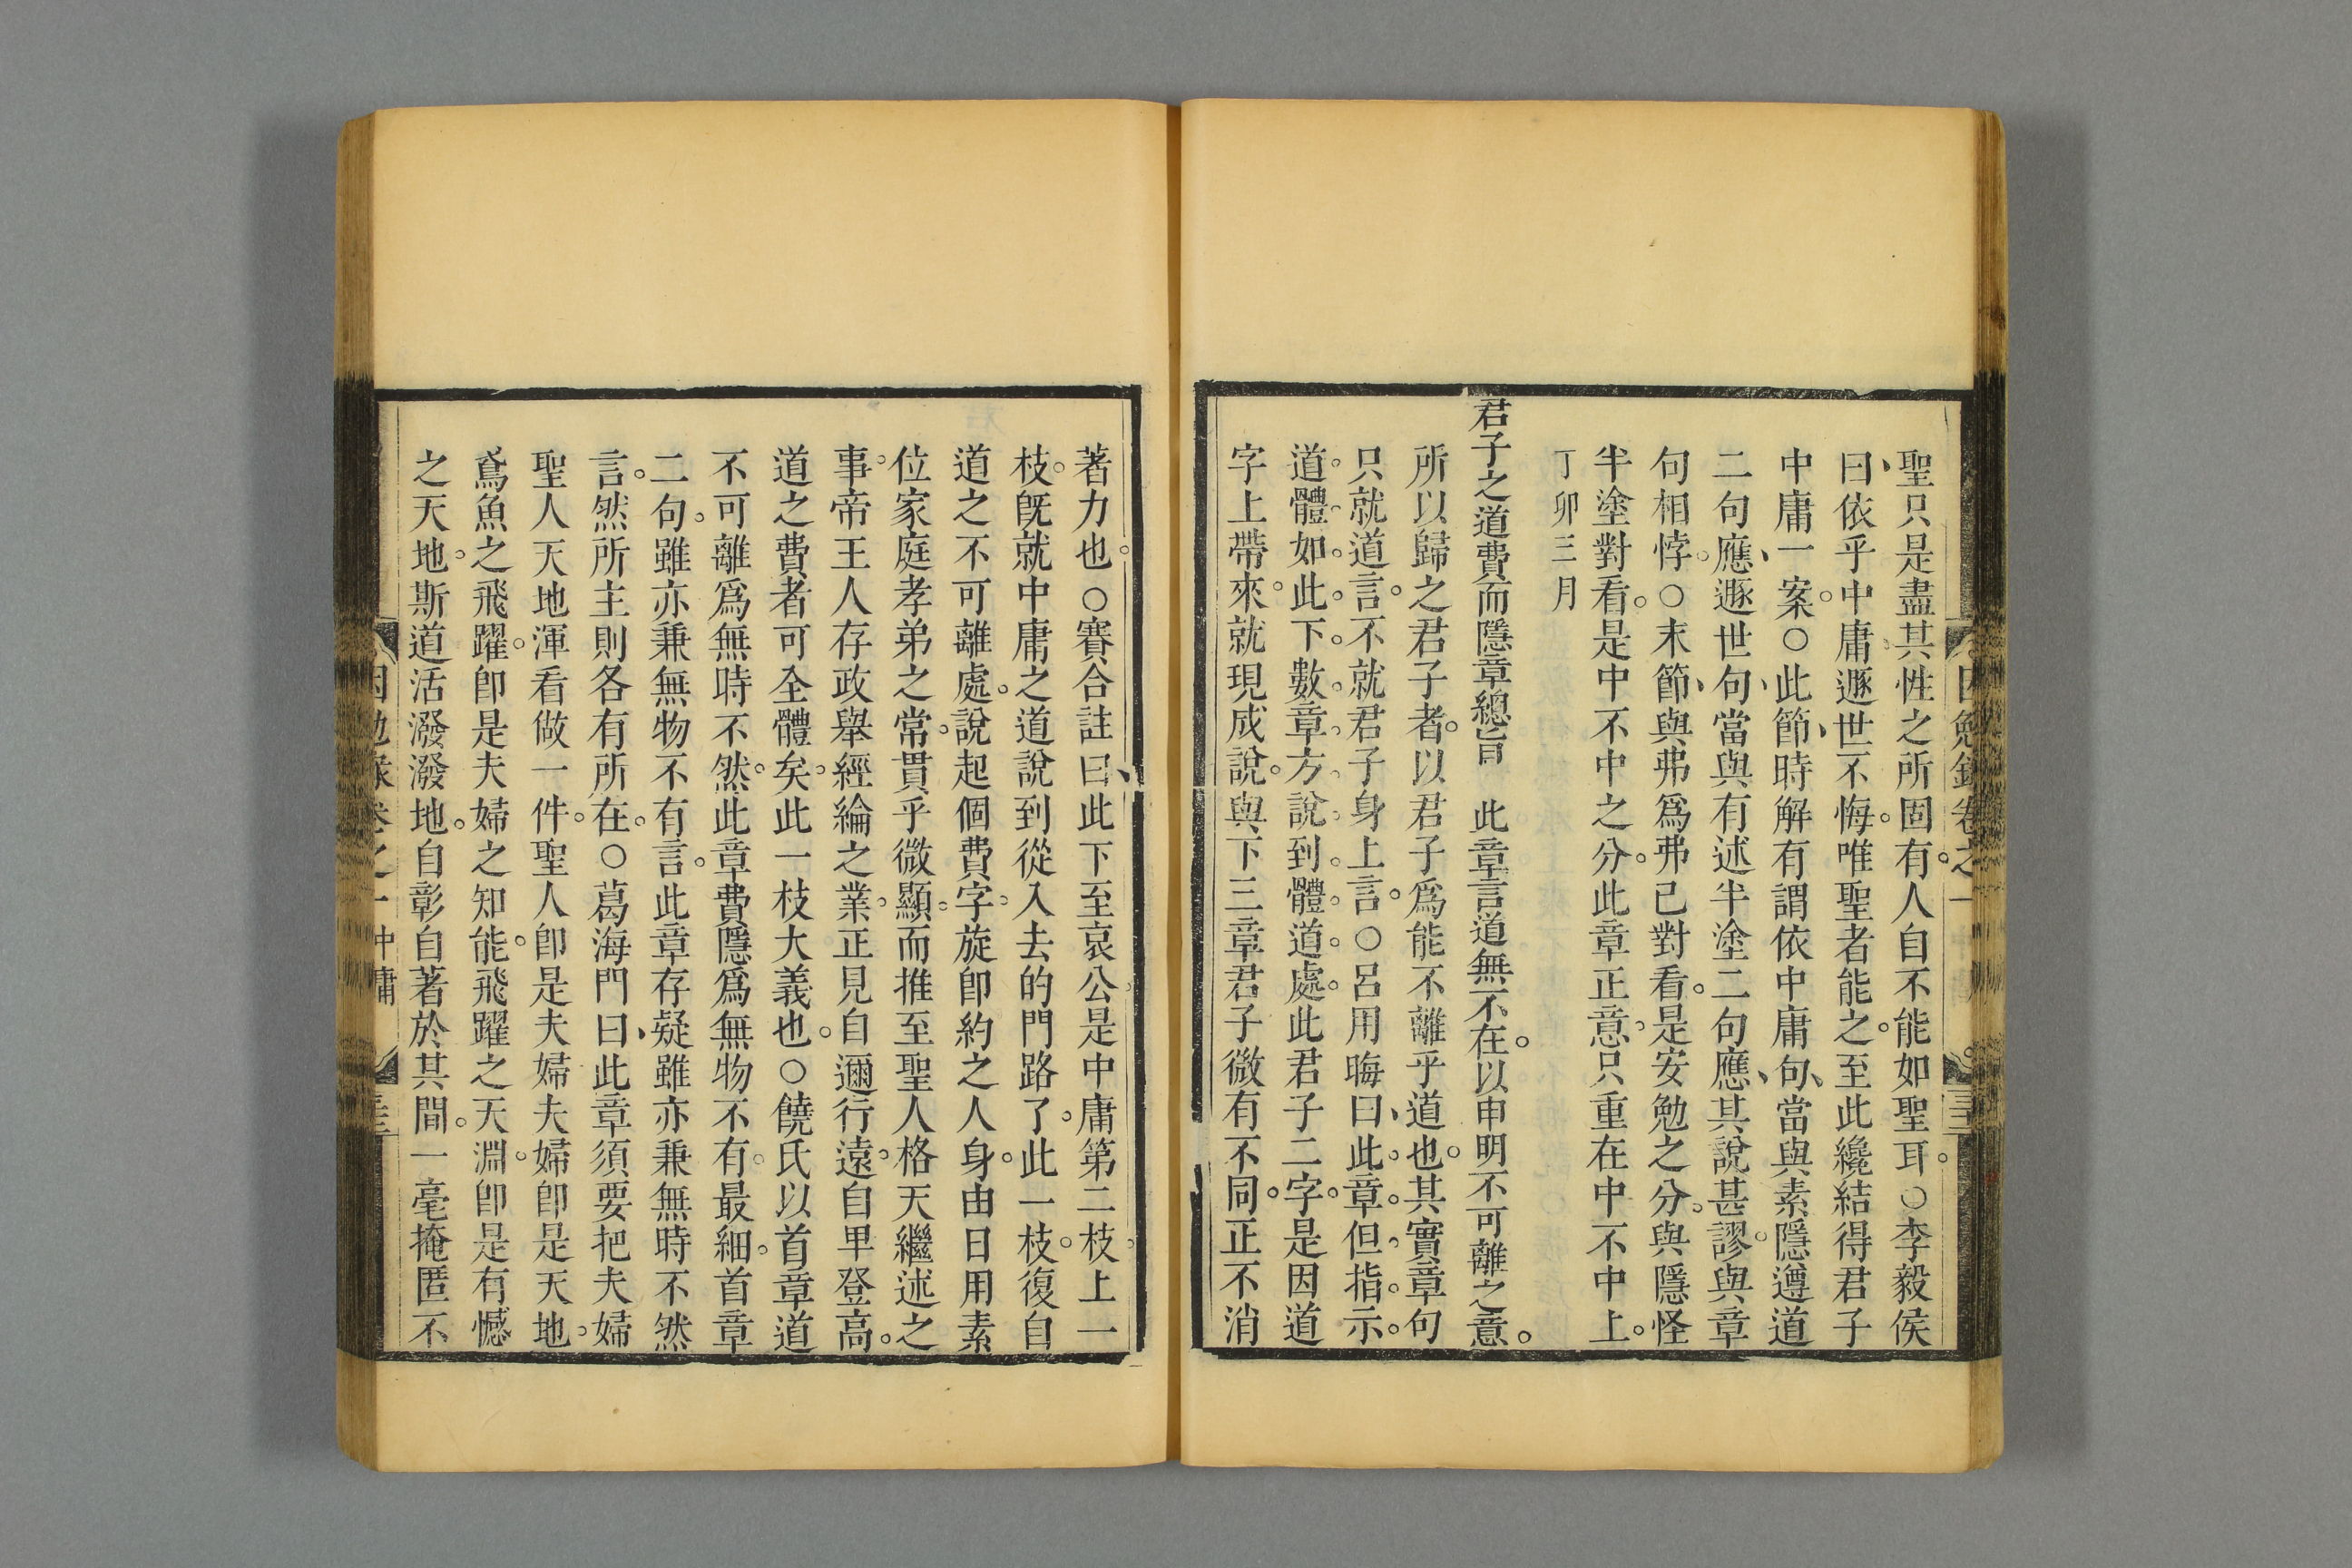 聖只是盡其性之所固有人自不能如聖耳。○李毅侯
曰依乎中庸遯世不悔。唯聖者能之。至此纔結得君子
中庸一案。○此節時解有謂依中庸句當與素隱遵道
二句應遯世句當與有述半塗二句應其說甚謬。與章
句相悖。○末節與弗爲弗已對看。是安勉之分。與隱怪
半塗對看。是中不中之分。此章正意只重在中不中上。
丁卯三月
君子之道費而隱章總旨 此章言道無不在。以申明不可離之意。
所以歸之君子者。以君子爲能不離乎道也。其實章句
只就道言。不就君子身上言。○呂用晦曰此章但指示
道體如此。下數章方說到體道處。此君子二字是因道
字上帶來。就現成說。與下三章君子微有不同。正不消
著力也。○賽合註曰此下至哀公是中庸第二枝上一
枝。旣就中庸之道說到從入去的門路了。此一枝。復自
道之不可離處。說起個費字。旋卽約之人身。由日用素
位家庭孝弟之常。貫乎微顯。而推至聖人格天繼述之
事。帝王人存政舉經綸之業。正見自邇行遠。自卑登高。
道之費者可全體矣。此一枝大義也。○饒氏以首章道
不可離爲無時不然。此章費隱爲無物不有。最細。首章
二句。雖亦兼無物不有言。此章存疑雖亦兼無時不然
言。然所主則各有所在。○葛海門曰此章須要把夫婦
聖人天地渾看做一件。聖人卽是夫婦。夫婦卽是天地。
鳶魚之飛躍。卽是夫婦之知能。飛躍之天淵。卽是有憾
之天地。斯道活潑潑地。自彰自著於其間。一毫掩匿不